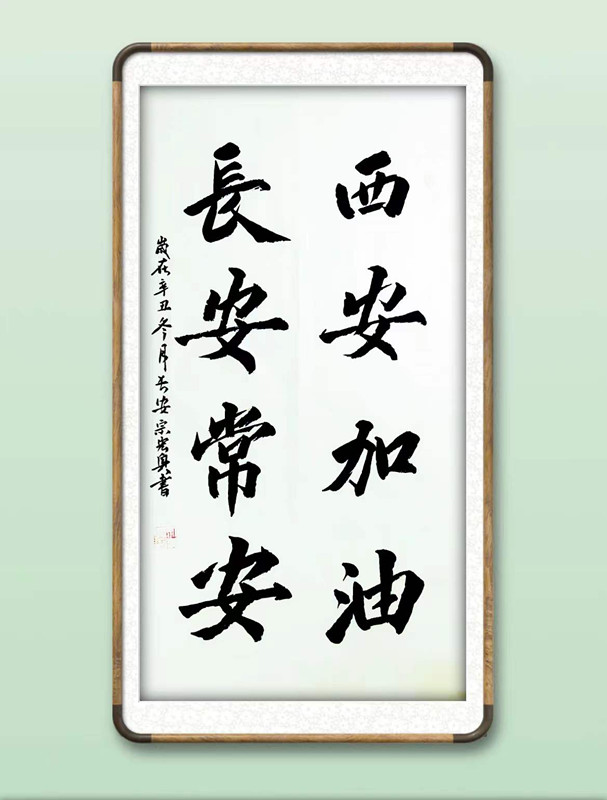 西安加油
長安常安
歲在辛丑冬月长安宗宏興書